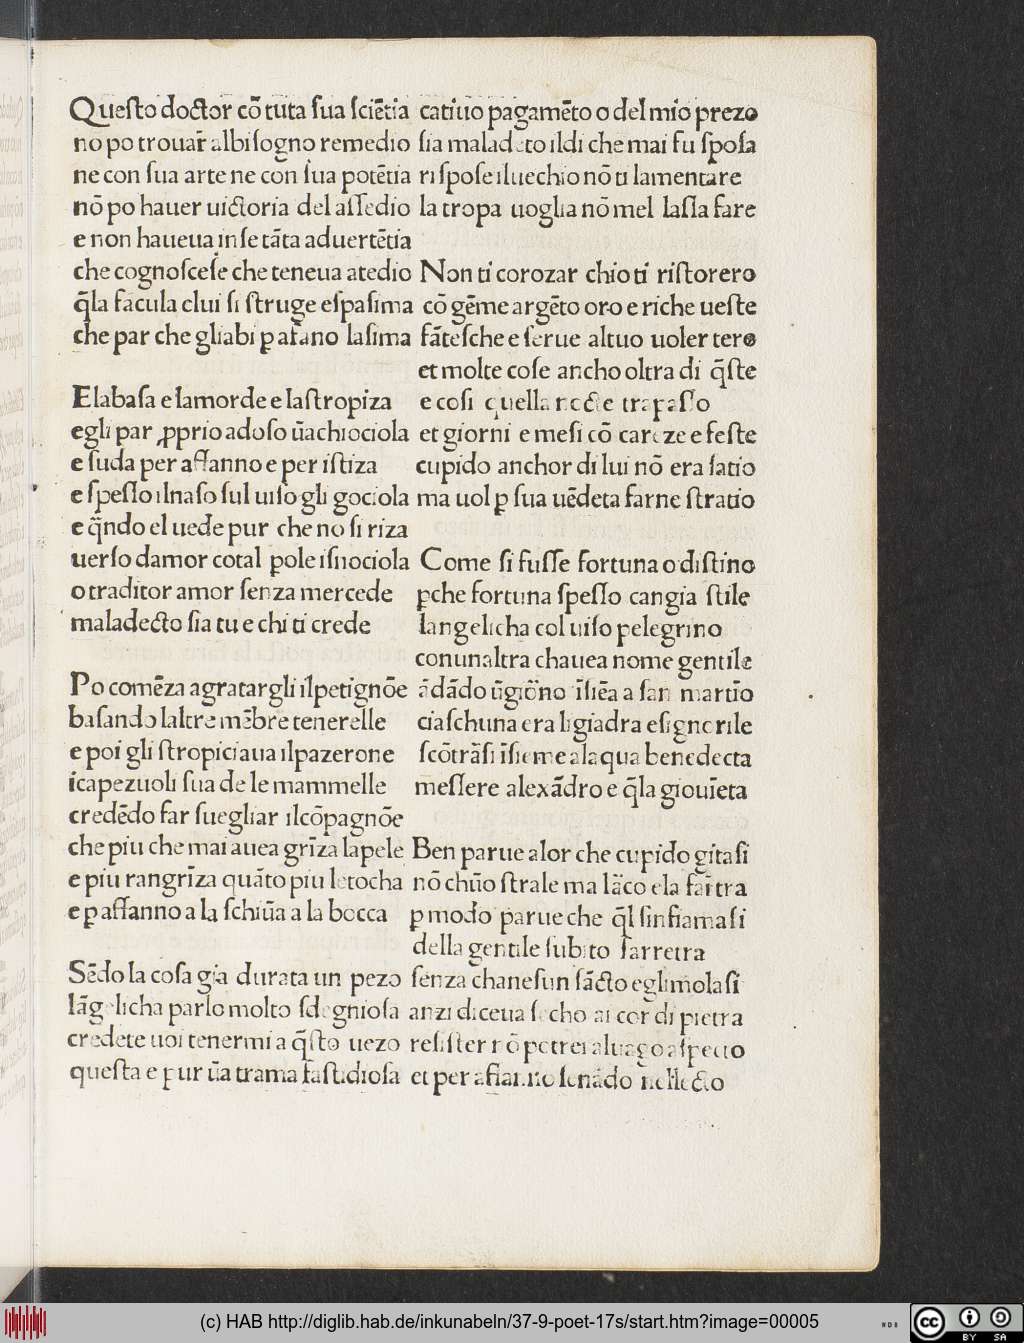 Queſto doctor cō tuta ſua ſciētia
no po trouar̄ albiſogno remedio
ne con ſua arte ne con ſua potētia
nō po hauer uictoria del aſſedio
e non haueua in ſe tāta aduertētia
che cognoſceſe che teneua atedio
q̄la facula clui ſi ſtruge eſpaſima
che par che gliabi ꝑ afāno laſima
Elabaſa e lamorde e laſtropiza
egli par ꝓprio adoſo ūachiociola
e ſuda per affanno e per iſtiza
e ſpeſſo ilnaſo ſul uiſo gli gociola
e q̄ndo el uede pur che no ſi riza
uerſo damor cotal ꝑole iſnociola
o traditor amor ſenza mercede
maladecto ſia tu e chi ti crede
Po comēza agratargli ilpetignōe
baſando laltre mēbre tenerelle
e poi gli ſtropiciaua ilpazerone
icapezuoli ſua de le mammelle
credēdo far ſuegliar ilcōpagnōe
che piu che mai auea grīza lapele
e piu rangrīza quāto piu letocha
e ꝑ affanno a la ſchiūa a la bocca
Sēdo la coſa gia durata un pezo
lāgelicha parlo molto ſdegnioſa
credete uoi tenermi a q̄ſto uezo
queſta e pur ūa trama faſtidioſa
catiuo pagamēto o del mio prezo
ſia maladeto ildi che mai fu ſpoſa
riſpoſe iluechio nō ti lamentare
la tropa uoglia nō mel laſſa fare
Non ti corozar chio ti riſtorero
cō gēme argēto oro e riche ueſte
fāteſche e ſerue al tuo uoler tero
et molte coſe ancho oltra di q̄ſte
e coſi quella nocte trapaſſo
et giorni e meſi cō careze e feſte
cupido anchor di lui nō era ſatio
ma uol ꝑ ſua uēdeta farne ſtratio
Come ſi fuſſe fortuna o diſtino
ꝑche fortuna ſpeſſo cangia ſtile
langelicha col uiſo pelegrino
conunaltra chauea nome gentile
ādādo ūgiōno īſiēa a ſan martīo
ciaſchuna era ligiadra eſignorile
ſcōtrāſi īſieme alaqua benedecta
meſſere alexādro e q̄la giouīeta
Ben parue alor che cupido gitaſi
nō chūo ſtrale ma lāco e la far̄tra
ꝑ modo parue che q̄l ſinfiamaſi
della gentile ſubito farretra
ſenza chaneſun ſācto eglimolaſi
anzi diceua ſecho ai cor di pietra
reſiſter nō potrei aluago aſpecto
et per afanno ſenādo nellecto
(c) HAB http://diglib.hab.de/inkunabeln/37-9-poet-17s/start.htm?image=00005
cc BY SA